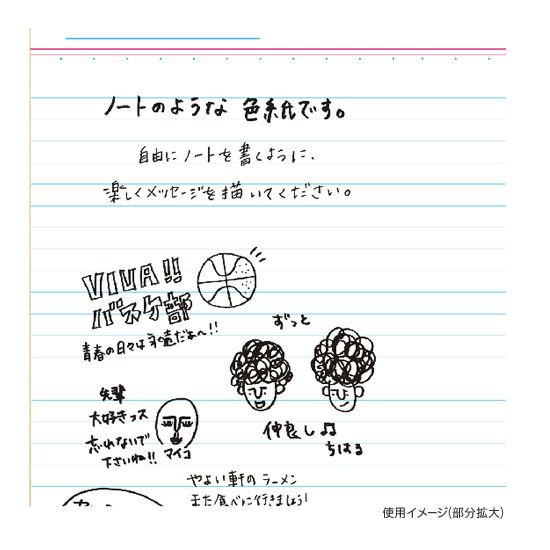 ノートのような 色紙です。
自由にノートを書くように、
楽しくメッセージを描いてください。
VIVA!!
バスケ部
青春の日々は永遠だぁへ!!
ずっと
仲良し♫
ちはる
先輩
大好きっス
忘れないで
下さいね!!
マイコ
やよい軒のラーメン
また食べに行きましょう!
使用イメージ(部分拡大)